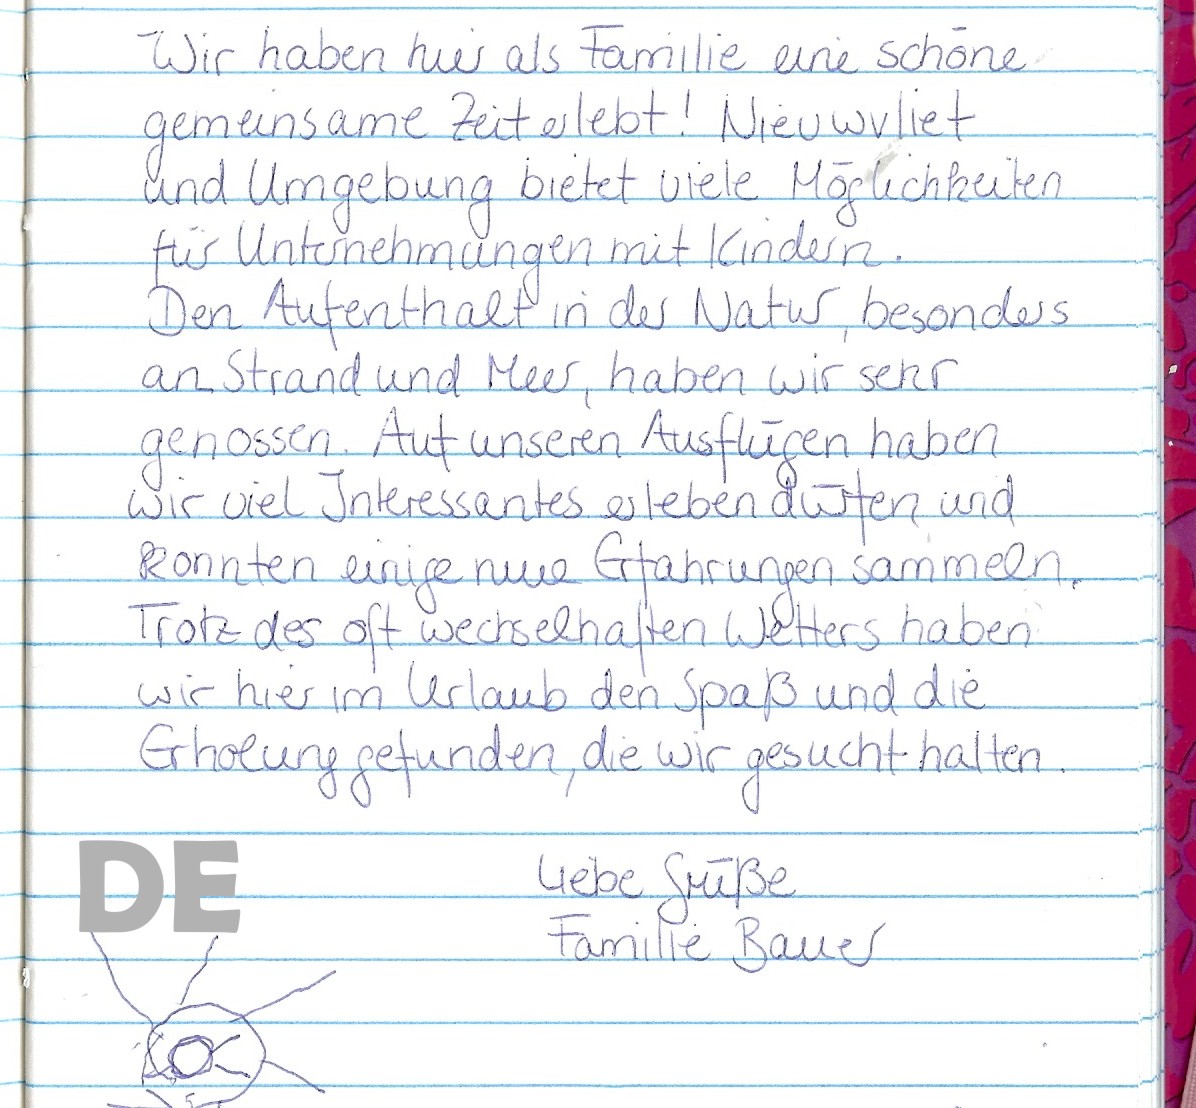 Wir haben hier als Familie eine schöne
gemeinsame Zeit erlebt! Nieuwvliet
und Umgebung bietet viele Möglichkeiten
für Unternehmungen mit Kindern.
Den Aufenthalt in der Natur, besonders
an Strand und Meer, haben wir sehr
genossen. Auf unseren Ausflügen haben
wir viel Interessantes erleben dürfen und
konnten einige neue Erfahrungen sammeln.
Trotz des oft wechselhaften Wetters haben
wir hier im Urlaub den Spaß und die
Erholung gefunden, die wir gesucht hatten.
DE
Liebe Grüße
Familie Bauer